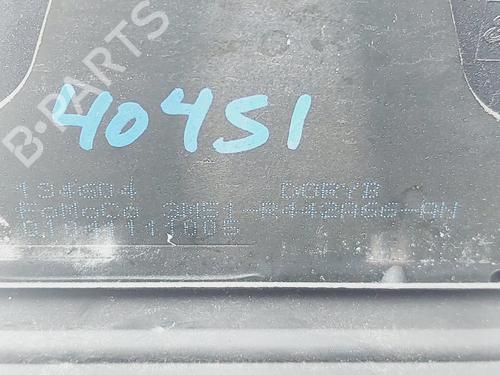 B-PARTS
40451
194604 DORYB
FoMoCo 3M51-R442A66-AN